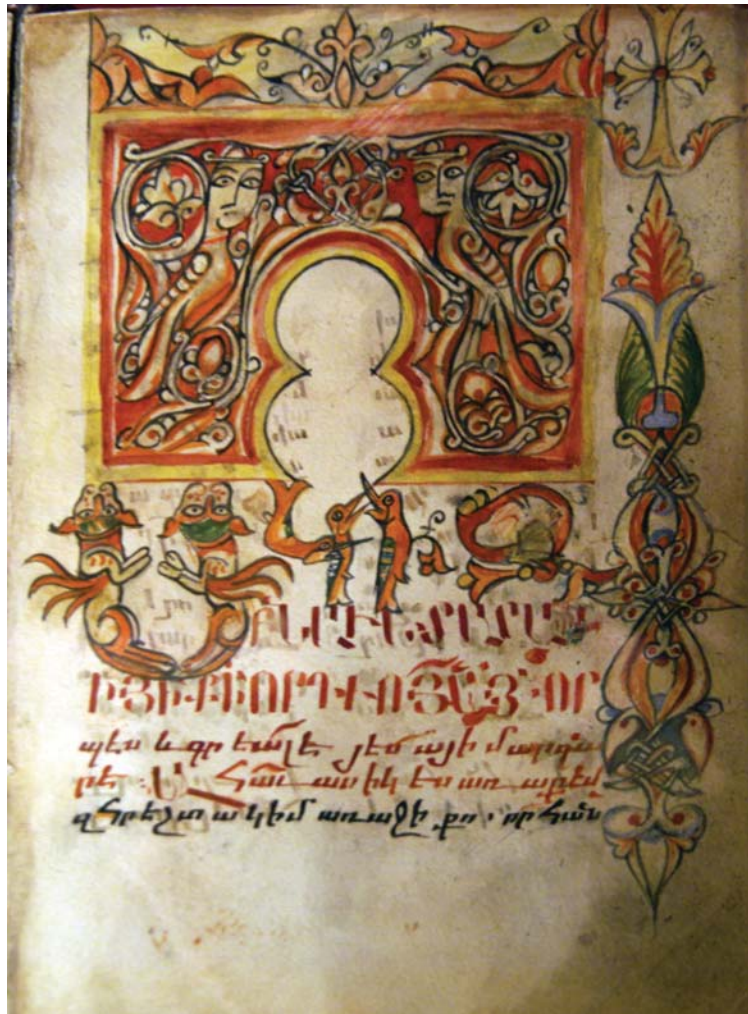 ՍԿԻԶ
ԲՆ ԱՒԵՏԱՐԱՆ
Ի ՅԻ ՔԻ ՈՐԴՒՈՅ ԱՅ ՈՐ
պէս և գրեալ է յեսայի մարգա
րէ. Ահաւասիկ ես առաքեմ
զհրեշտակ իմ առաջի քո. որ հան